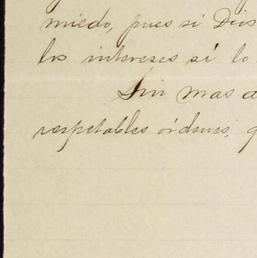 miedo, pues si Dios
los intereses si lo
Sin mas a
respetables órdenes, q